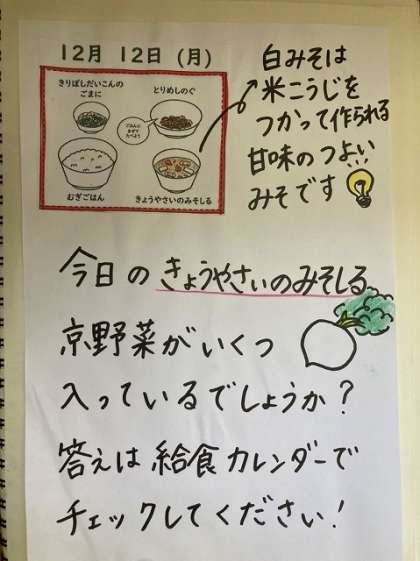 12月 12日 (月)
きりぼしだいこんの
ごまに
とりめしのぐ
ごはんに
まぜて
たべよう
むぎごはん
きょうやさいのみそしる
白みそは
米こうじを
つかって作られる
甘味のつよい
みそです
今日の きょうやさいのみそしる
京野菜がいくつ
入っているでしょうか?
答えは給食カレンダーで
チェックしてください!